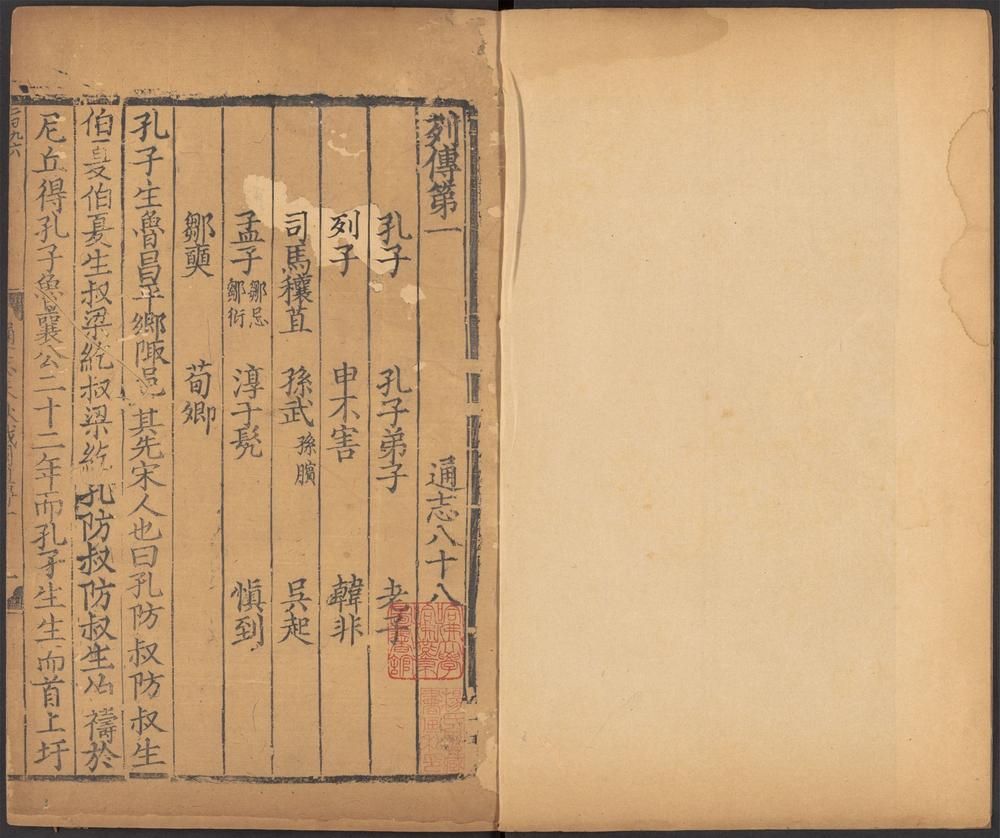 列傳第一 通志八十八
孔子 孔子弟子 老子
列子 申不害 韓非
司馬穰苴 孫武 孫臏 吳起
孟子 鄒忌 鄒衍 淳于髡 愼到
鄒奭 荀卿
孔子生魯昌平鄉陬邑其先宋人也曰孔防叔防叔生
伯夏伯夏生叔梁紇叔梁紇孔防叔防叔生 禱於
尼丘得孔子魯襄公二十二年而孔子生生而首上圩
二百九六